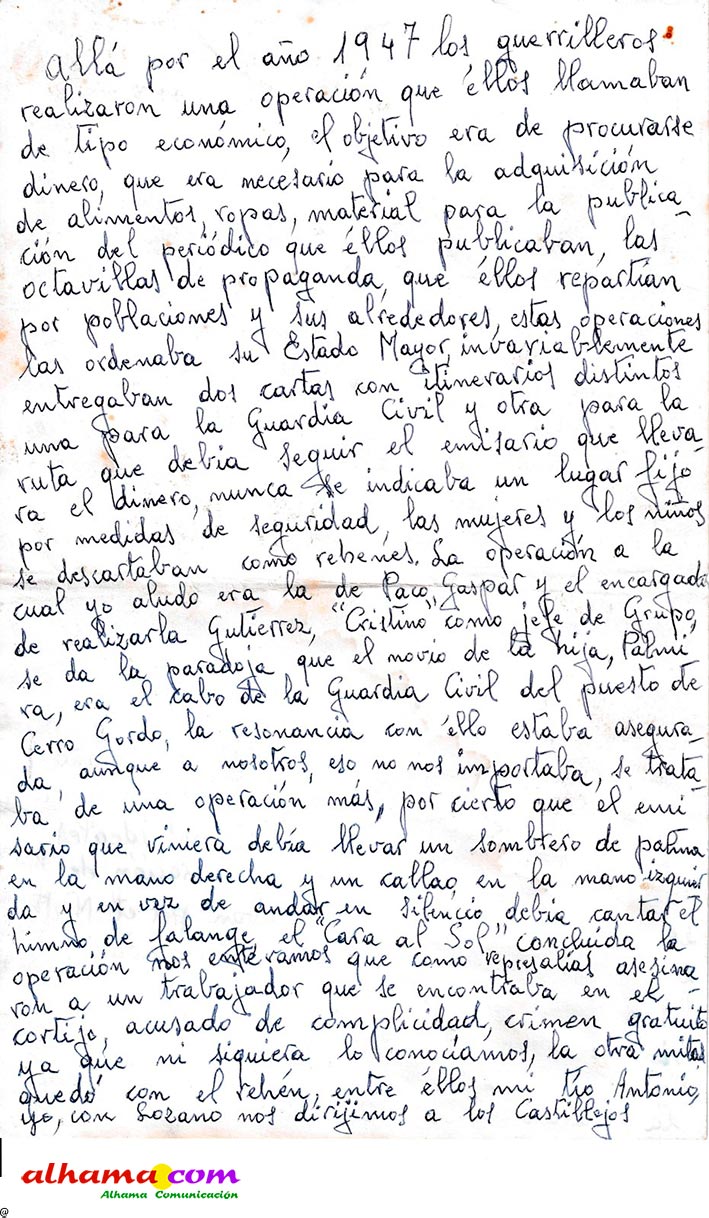 Allá por el año 1947 los guerrilleros
realizaron una operación que éllos llamaban
de tipo económico, el objetivo era de procurarse
dinero, que era necesario para la adquisición
de alimentos, ropas, material para la publica-
ción del periódico que éllos publicaban, las
octavillas de propaganda, que éllos repartían
por poblaciones y sus alrededores, estas operaciones
las ordenaba su Estado Mayor, invariablemente
entregaban dos cartas con itinerarios distintos
una para la Guardia Civil y otra para la
ruta que debía seguir el emisario que lleva-
ra el dinero, nunca se indicaba un lugar fijo
por medidas de seguridad, las mujeres y los niños
se descartaban como rehenes. La operación a la
cual yo aludo era la de Paco, Gaspar y el encargado
de realizarla Gutiérrez, "Cristino" como jefe de Grupo,
se da la paradoja que el novio de la hija, Palmi-
ra, era el cabo de la Guardia Civil del puesto de
Cerro Gordo, la resonancia con éllo estaba asegura-
da, aunque a nosotros, eso no nos importaba, se trata-
ba de una operación más, por cierto que el emi-
sario que viniera debía llevar un sombrero de palma
en la mano derecha y un callao, en la mano izquier
da y en vez de andar en silencio debía cantar el
himno de falange, el "Cara al Sol" concluida la
operación nos enteramos que como represalias asesina
ron a un trabajador que se encontraba en el
cortijo, acusado de complicidad, crimen gratuito
ya que ni siquiera lo conocíamos, la otra mitad
quedó con el rehén, entre éllos mi tío Antonio,
yo, con Lozano nos dirijimos a los Castillejos
alhama.com
Alhama Comunicación
@